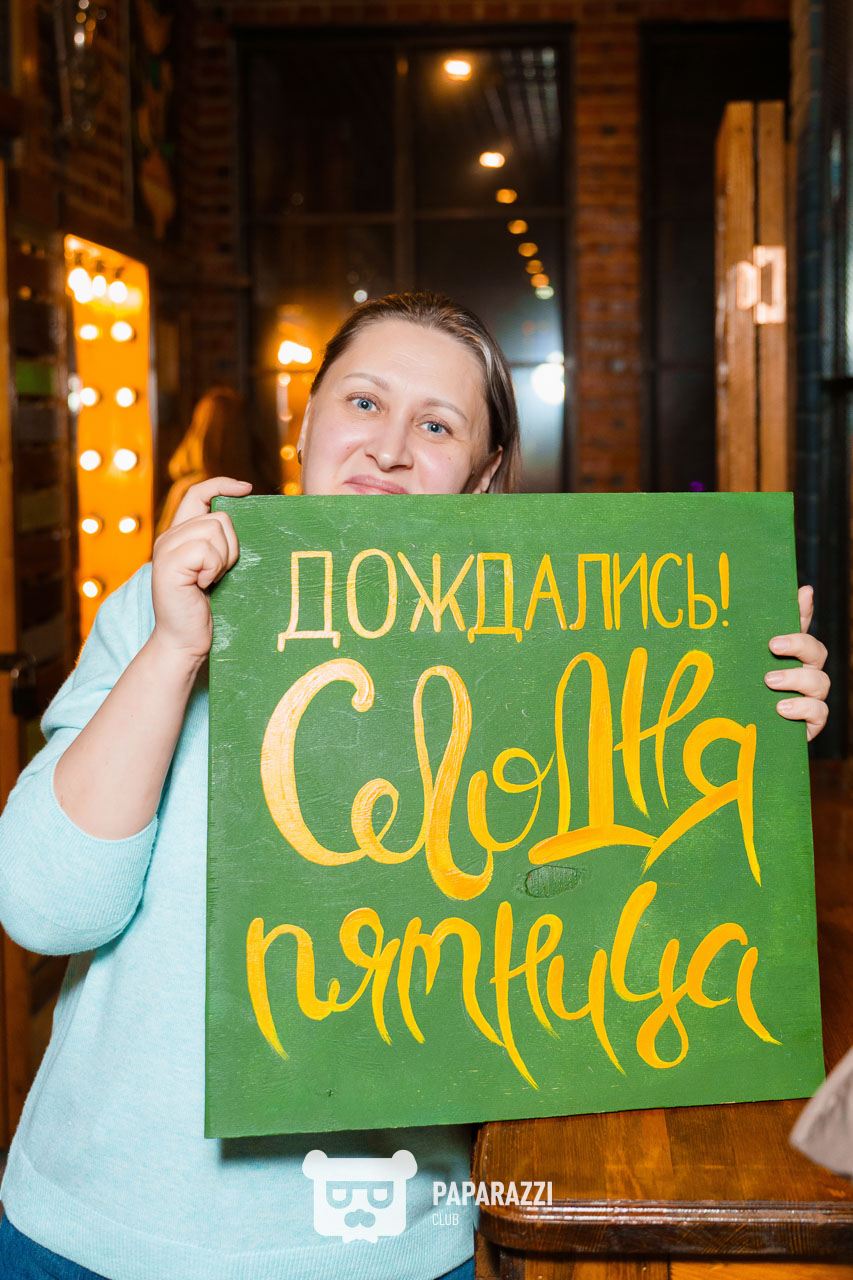 ДОЖДАЛИСЬ!
Сегодня
пятница
PAPARAZZI
CLUB